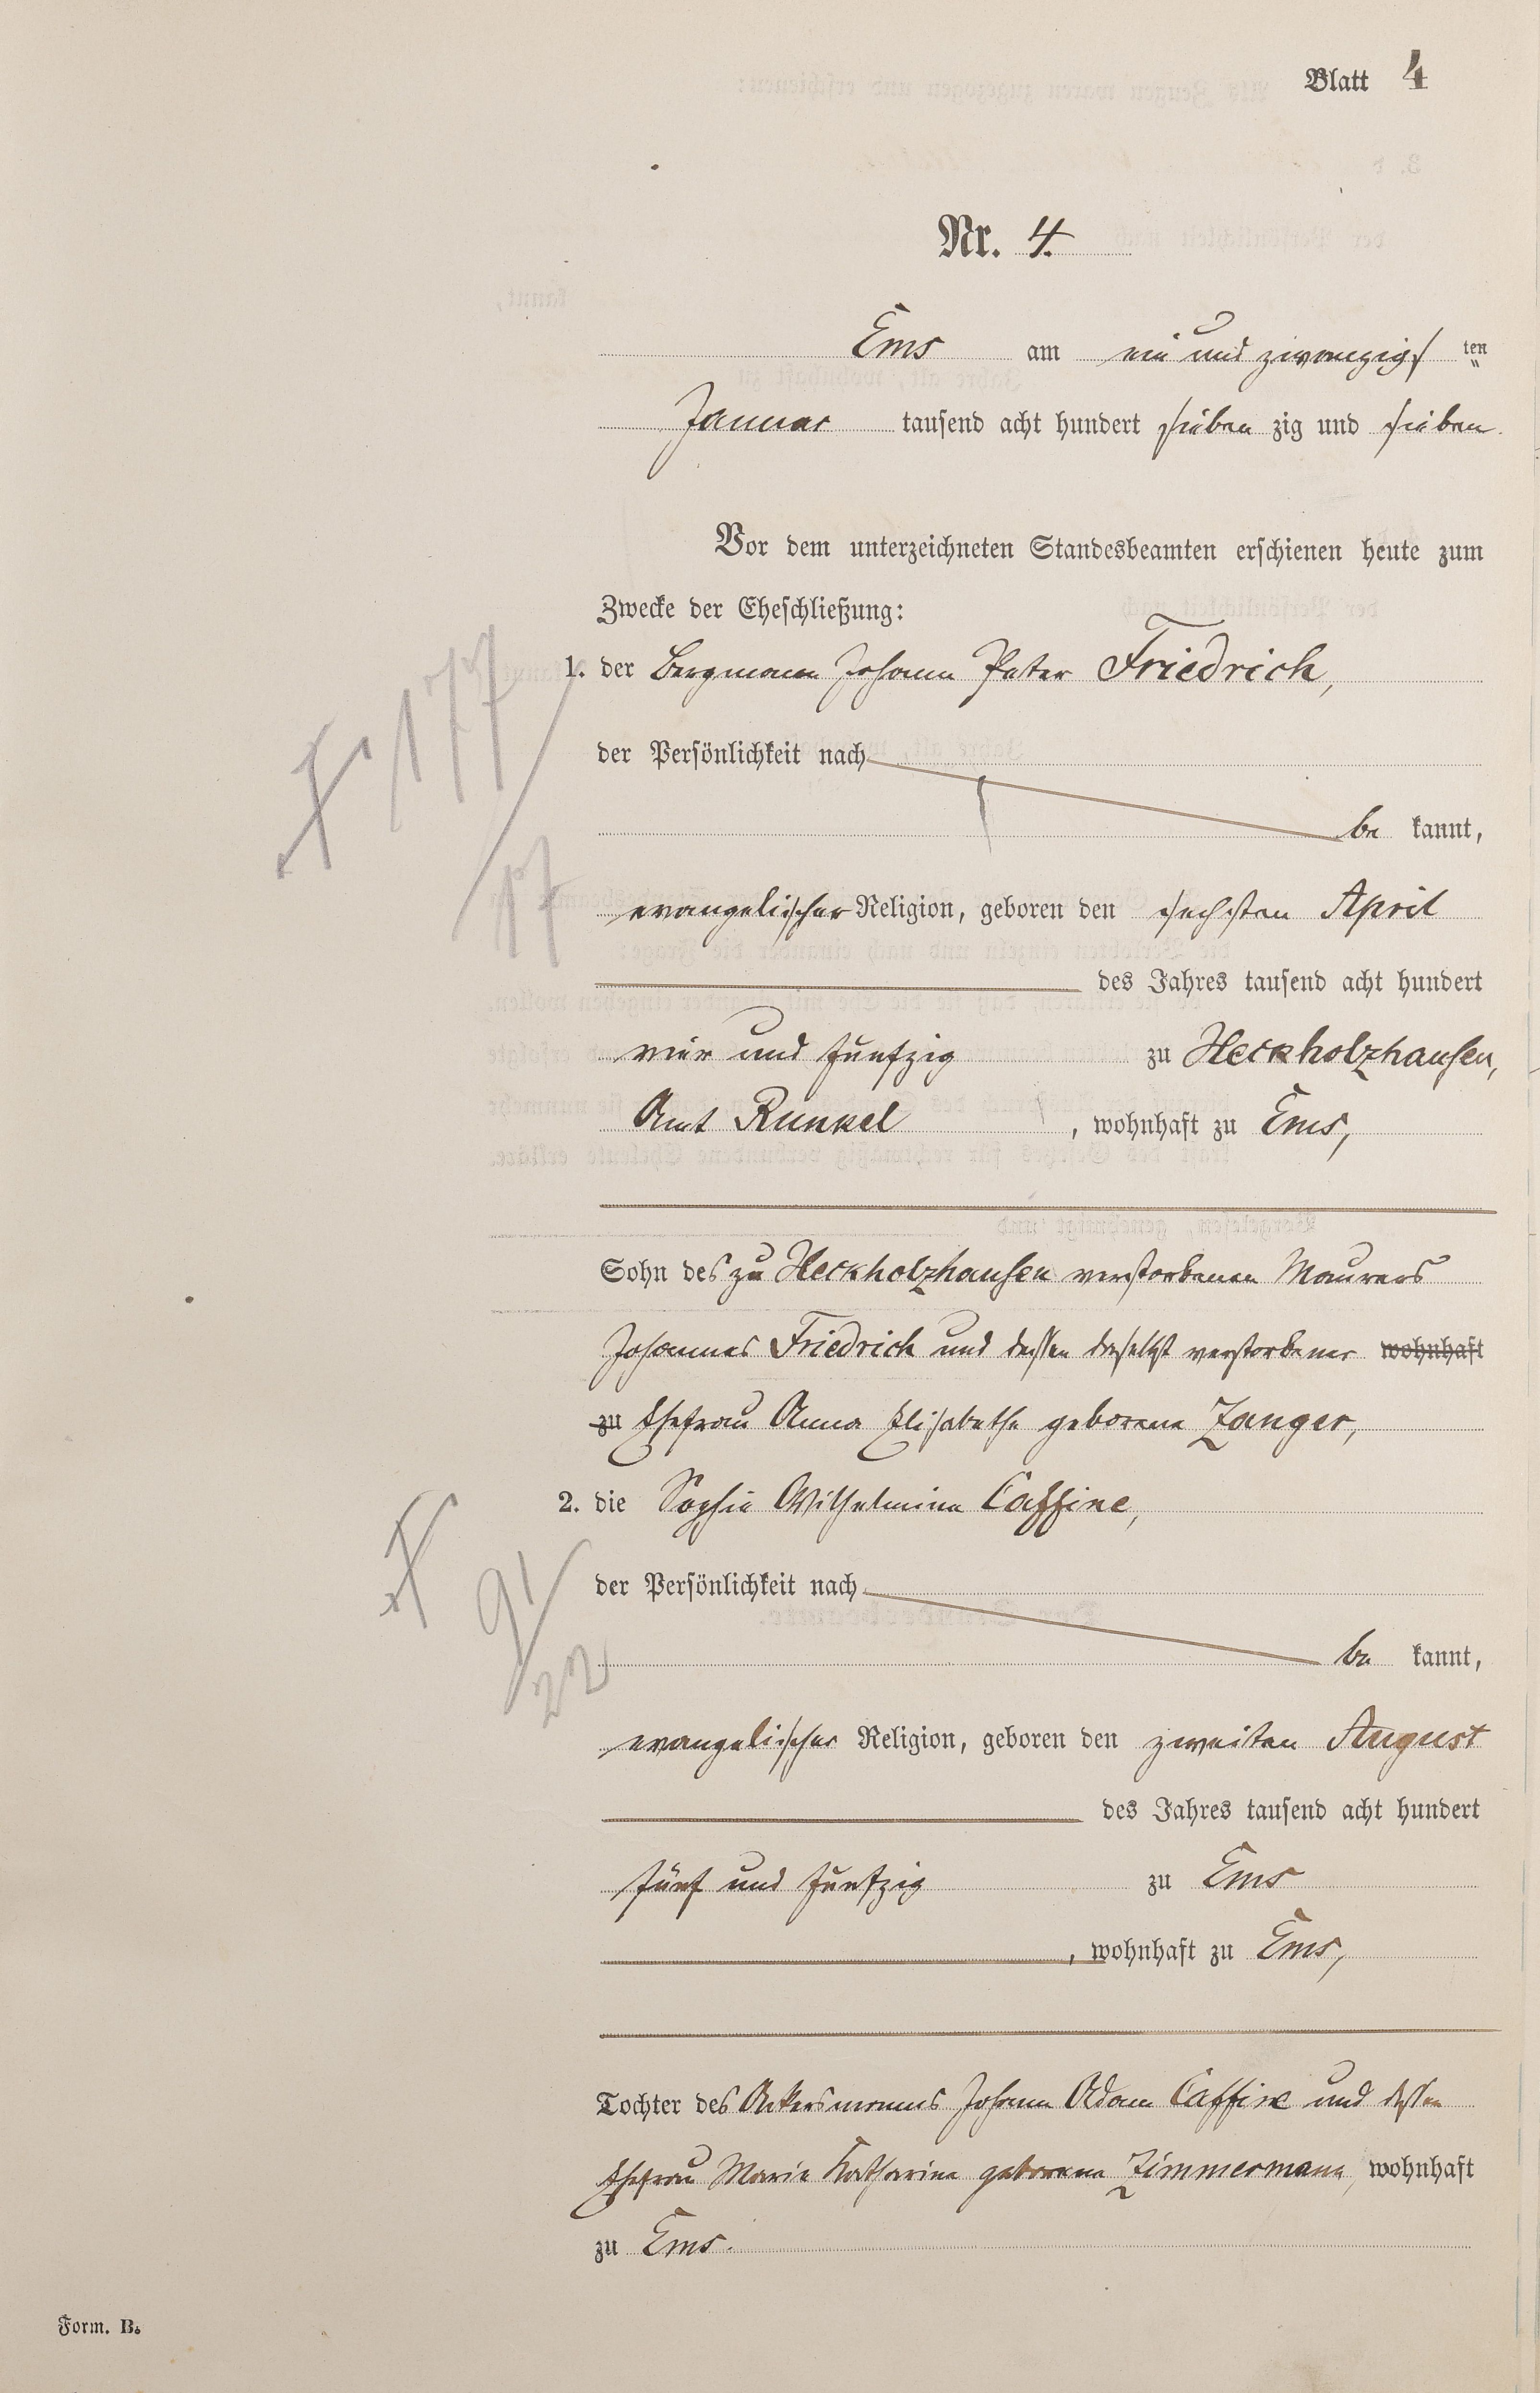 Blatt 4
Nr. 4.
Ems am ein und zwanzigsten
Januar tausend acht hundert sieben zig und sieben
Vor dem unterzeichneten Standesbeamten erschienen heute zum
Zwecke der Eheschließung:
1. der Bergmann Johann Peter Friedrich,
der Persönlichkeit nach
be kannt,
evangelischer Religion, geboren den sechsten April
des Jahres tausend acht hundert
vier und funfzig zu Heckholzhausen,
Amt Runkel, wohnhaft zu Ems,
Sohn des zu Heckholzhausen verstorbenen Maurers
Johannes Friedrich und dessen daselbst verstorbener wohnhaft
zu Ehefrau Anna Elisabethe geborene Zanger,
2. die Sophie Wilhelmine Caffine,
der Persönlichkeit nach
be kannt,
evangelischer Religion, geboren den zweiten August
des Jahres tausend acht hundert
fünf und funfzig zu Ems
, wohnhaft zu Ems,
Tochter des Ackersmannes Johann Adam Caffine und dessen
Ehefrau Marie Katharine geborene Zimmermann, wohnhaft
zu Ems.
Form. B.